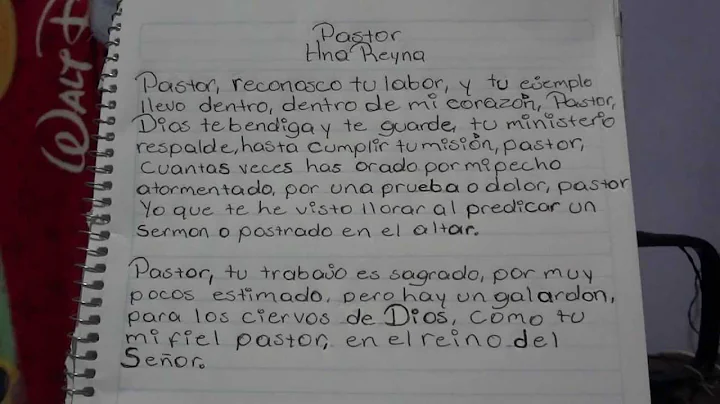 WALT
Pastor
Hna Reyna
Pastor, reconosco tu labor, y tu ejemplo
llevo dentro, dentro de mi corazón, Pastor,
Dios te bendiga y te guarde, tu ministerio
respalde, hasta cumplir tu misión, pastor,
Cuantas veces has orado por mi pecho
atormentado, por una prueba o dolor, pastor
Yo que te he visto llorar al predicar un
Sermon o postrado en el altar.
Pastor, tu trabajo es sagrado, por muy
pocos estimado, pero hay un galardon,
para los ciervos de Dios, como tu
mi fiel pastor, en el reino del
Señor.